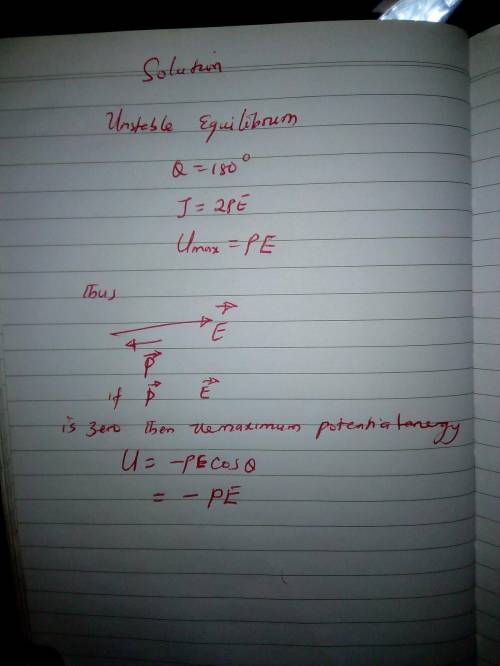 Solution
Unstable Equilibrum
Q = 180°
J = 2PE
Umax = PE
Thus
E
P
if P E
is zero then maximum potential energy
U = -PE cos Q
= - PE